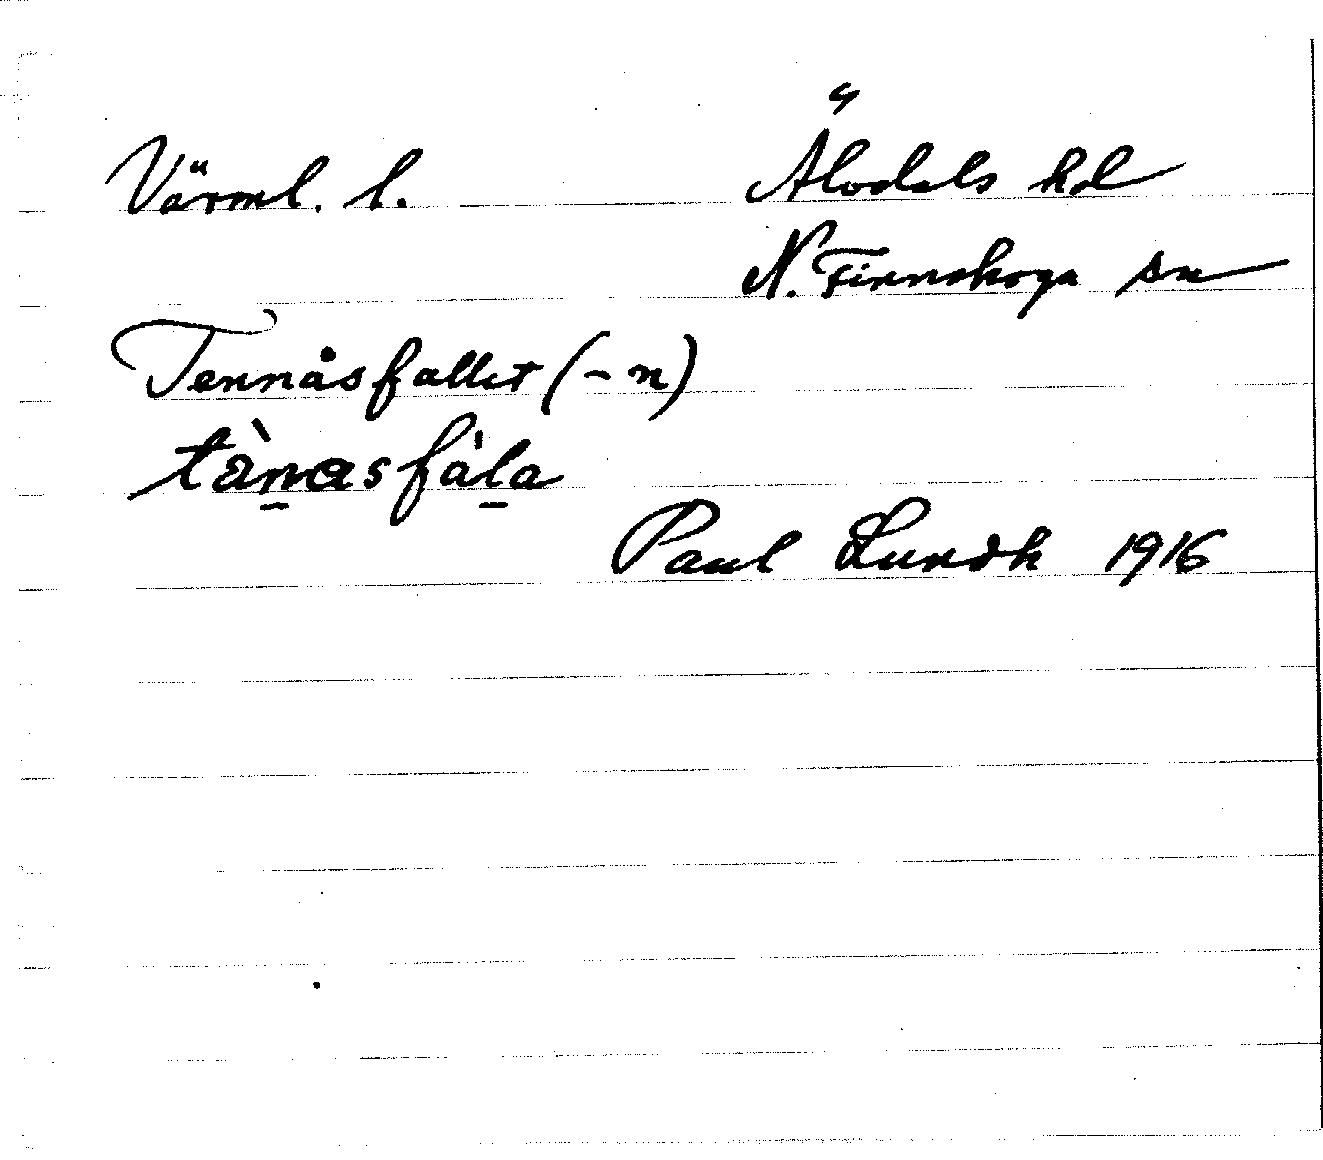 Värml. l. Älvdals hd
N. Finnskoga sn
Tennåsfallet (-n)
tànasfàla
Paul Lundh 1916